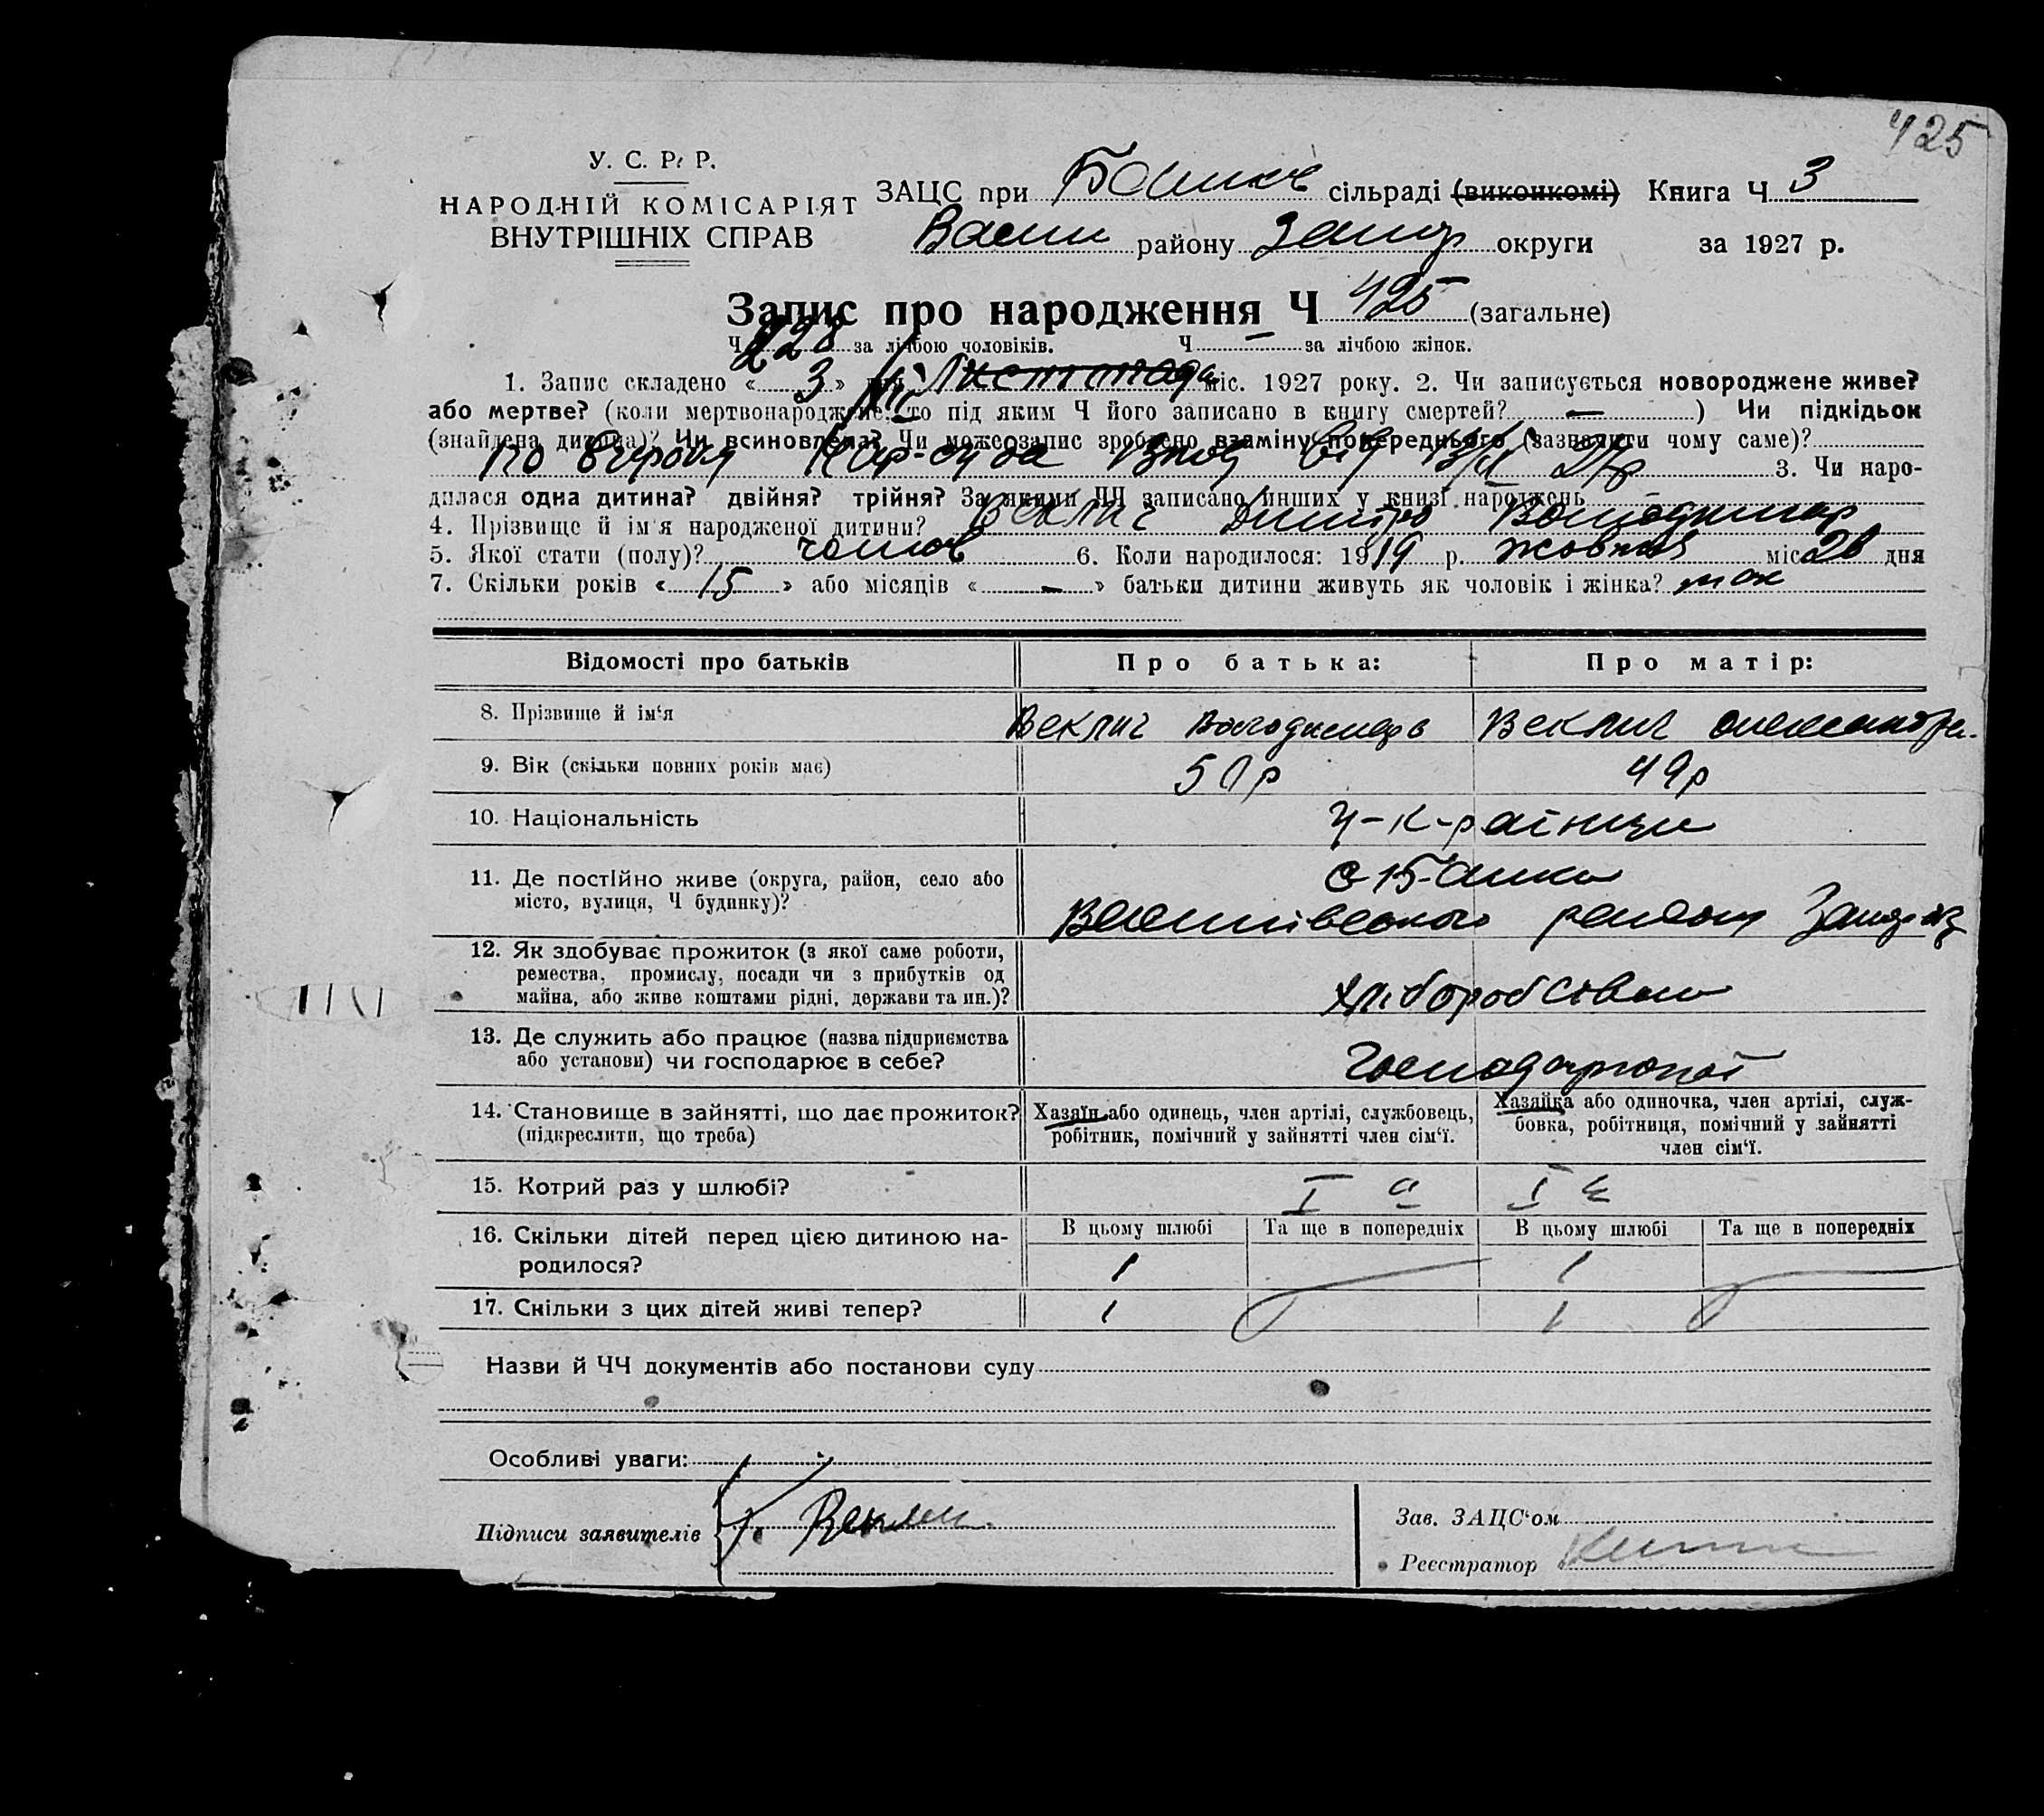 425
У. С. Р. Р.
НАРОДНІЙ КОМІСАРІЯТ
ВНУТРІШНІХ СПРАВ
ЗАЦС при сільраді (виконкомі) Книга Ч 3
Васили району Запор округи за 1927 р.
Запис про народження Ч 425 (загальне)
Ч 228 за лічбою чоловіків. Ч — за лічбою жінок.
1. Запис складено « 3 » дня Листопада міс. 1927 року. 2. Чи записується новороджене живе?
або мертве? (коли мертвонароджене, то під яким Ч його записано в книгу смертей? — ) Чи підкідьок
(знайдена дитина)? Чи всиновлена? Чи може запис зроблено взаміну попереднього (зазначити чому саме)?
По Вироку Нар-суда від 27р 3. Чи наро-
дилася одна дитина? двійня? трійня? За якими ЧЧ записано інших у книзі народжень —
4. Прізвище й ім'я народженої дитини? Веклич Дмитро Володимир
5. Якої стати (полу)? чолов 6. Коли народилося: 1919 р. жовтня міс 26 дня
7. Скільки років « 15 » або місяців « — » батьки дитини живуть як чоловік і жінка? так
Відомості про батьків Про батька: Про матір:
8. Прізвище й ім'я Веклич Володимир Веклич Олександра
9. Вік (скільки повних років має) 50р 49р
10. Національність У-к-раїнци
11. Де постійно живе (округа, район, село або
місто, вулиця, Ч будинку)?
с Б-Василівського району Запоріз
12. Як здобуває прожиток (з якої саме роботи,
ремества, промислу, посади чи з прибутків од
майна, або живе коштами рідні, держави та ин.)?
Хліборобством
13. Де служить або працює (назва підприємства
або установи) чи господарює в себе?
Господарюют
14. Становище в зайнятті, що дає прожиток?
(підкреслити, що треба)
Хазяїн або одинець, член артілі, службовець,
робітник, помічний у зайнятті член сім'ї.
Хазяйка або одиночка, член артілі, служ-
бовка, робітниця, помічний у зайнятті
член сім'ї.
15. Котрий раз у шлюбі? I й I й
16. Скільки дітей перед цією дитиною на-
родилося?
В цьому шлюбі Та ще в попередніх В цьому шлюбі Та ще в попередніх
1 1
17. Скільки з цих дітей живі тепер? 1 1
Назви й ЧЧ документів або постанови суду
Особливі уваги:
Підписи заявителів Веклич
Зав. ЗАЦС'ом
Реєстратор